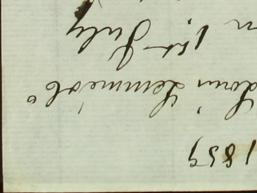 1859
Louis Lemmé & Co
1st July